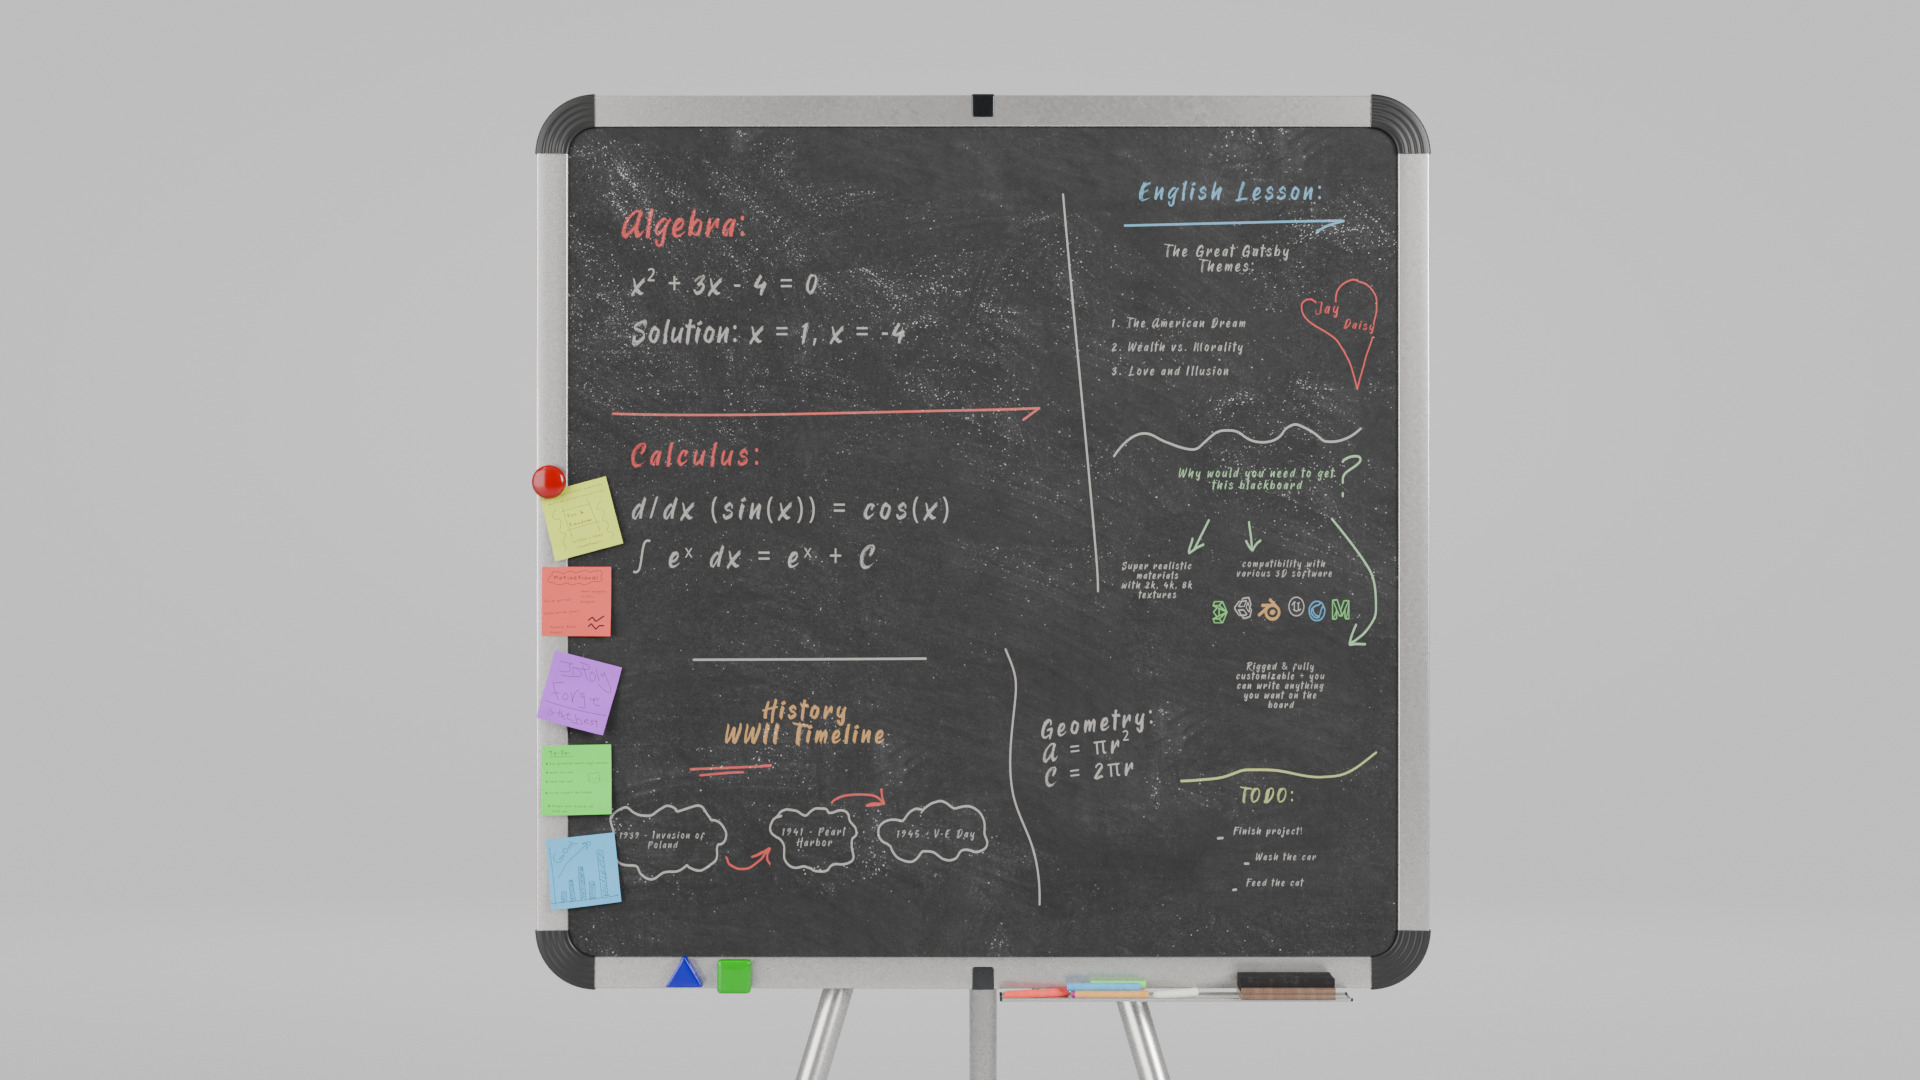 Algebra:
x² + 3x - 4 = 0
Solution: x = 1, x = -4
Calculus:
d/dx (sin(x)) = cos(x)
∫ eˣ dx = eˣ + C
History
WWII Timeline
1939 - Invasion of
Poland
1941 - Pearl
Harbor
1945 - V-E Day
English Lesson:
The Great Gatsby
Themes:
1. The American Dream
2. Wealth vs. Morality
3. Love and Illusion
Jay
Daisy
Why would you need to get
this blackboard ?
Super realistic
materials
with 2k, 4k, 8k
textures
compatibility with
various 3D software
Rigged & fully
customizable + you
can write anything
you want on the
board
Geometry:
A = πr²
C = 2πr
TODO:
- Finish project!
- Wash the car
- Feed the cat
Motivational
Forge
is the best